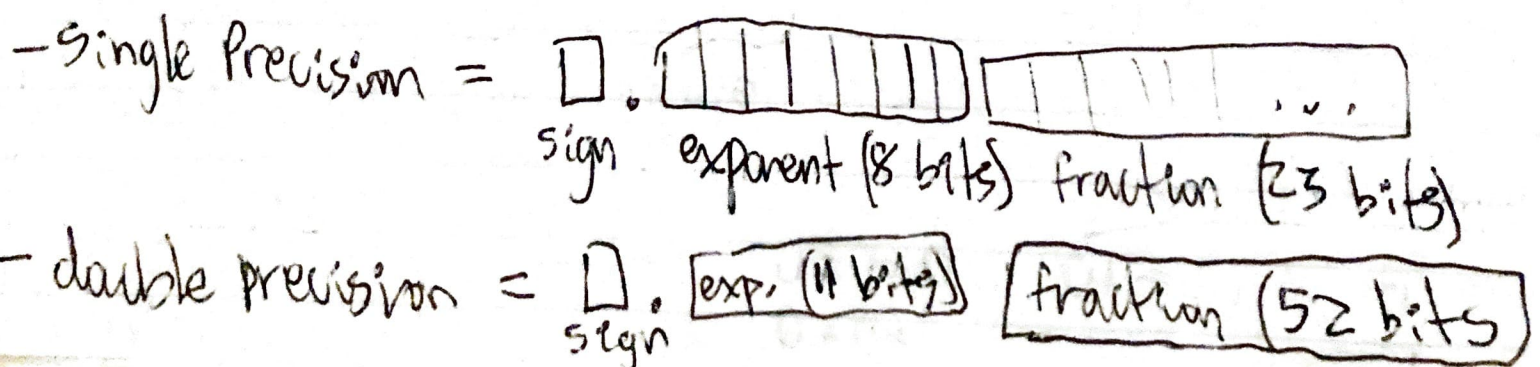 - Single Precision = .
sign exponent (8 bits) fraction (23 bits)
- double precision = . exp. (11 bits) fraction (52 bits
sign